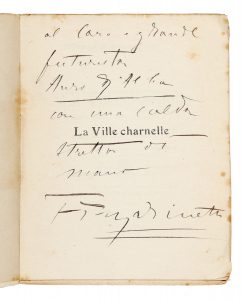 al caro e grande
futurista
Auro d'Alba
con una calda
La Ville charnelle
stretta di
mano
F. T. Marinetti